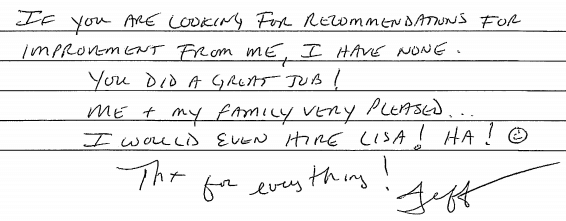 IF YOU ARE LOOKING FOR RECOMMENDATIONS FOR
IMPROVEMENT FROM ME, I HAVE NONE.
YOU DID A GREAT JOB!
ME + MY FAMILY VERY PLEASED...
I WOULD EVEN HIRE LISA! HA! ☺
Thx for everything! Jeff